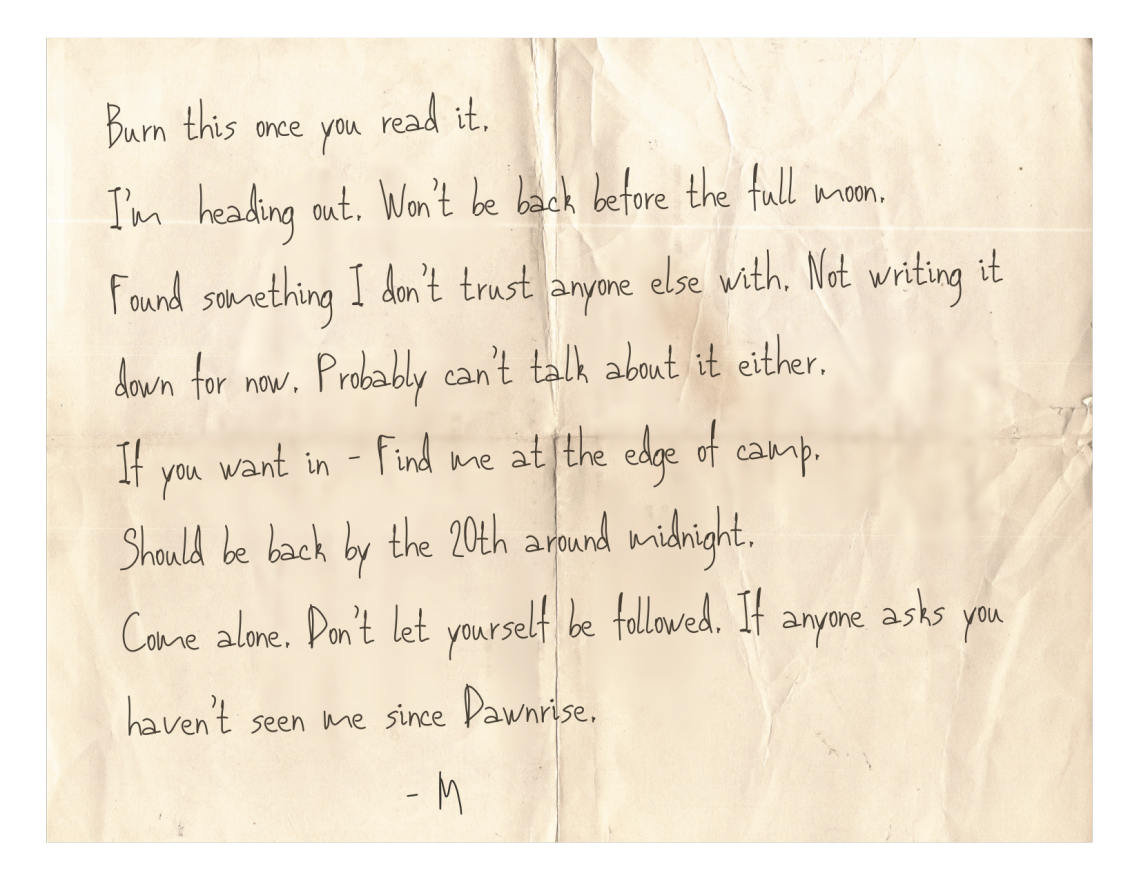 Burn this once you read it.
I'm heading out. Won't be back before the full moon.
Found something I don't trust anyone else with. Not writing it
down for now. Probably can't talk about it either.
If you want in - Find me at the edge of camp.
Should be back by the 20th around midnight.
Come alone. Don't let yourself be followed. If anyone asks you
haven't seen me since Dawnrise.
- M